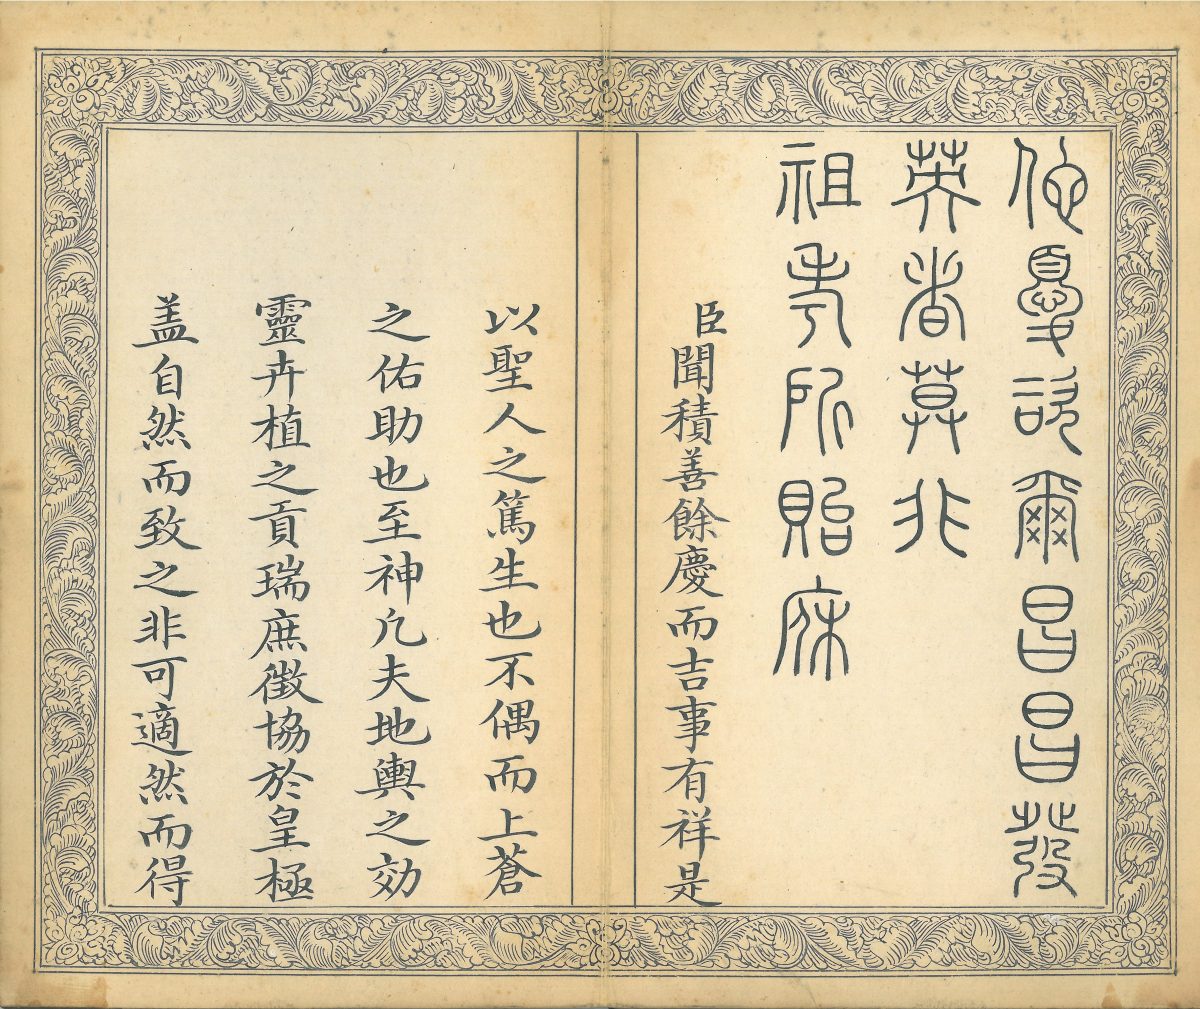 憂爾昌昌發
英者莫非
祖考所貽庥
臣聞積善餘慶而吉事有祥是
以聖人之篤生也不偶而上蒼
之佑助也至神凢夫地輿之効
靈卉植之貢瑞庶徵協於皇極
盖自然而致之非可適然而得